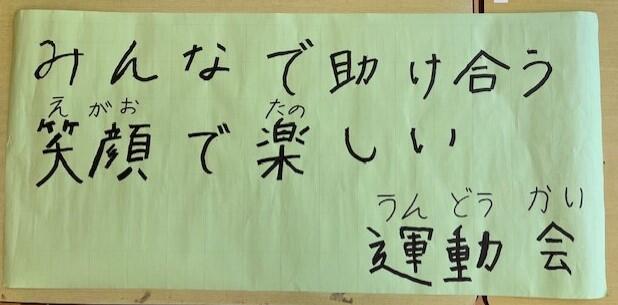 みんなで助け合う
えがお たの
笑顔で楽しい
うんどうかい
運動会